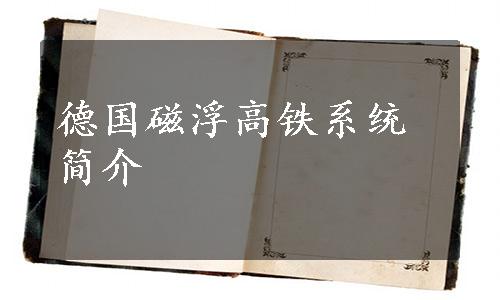 德国磁浮高铁系统
简介